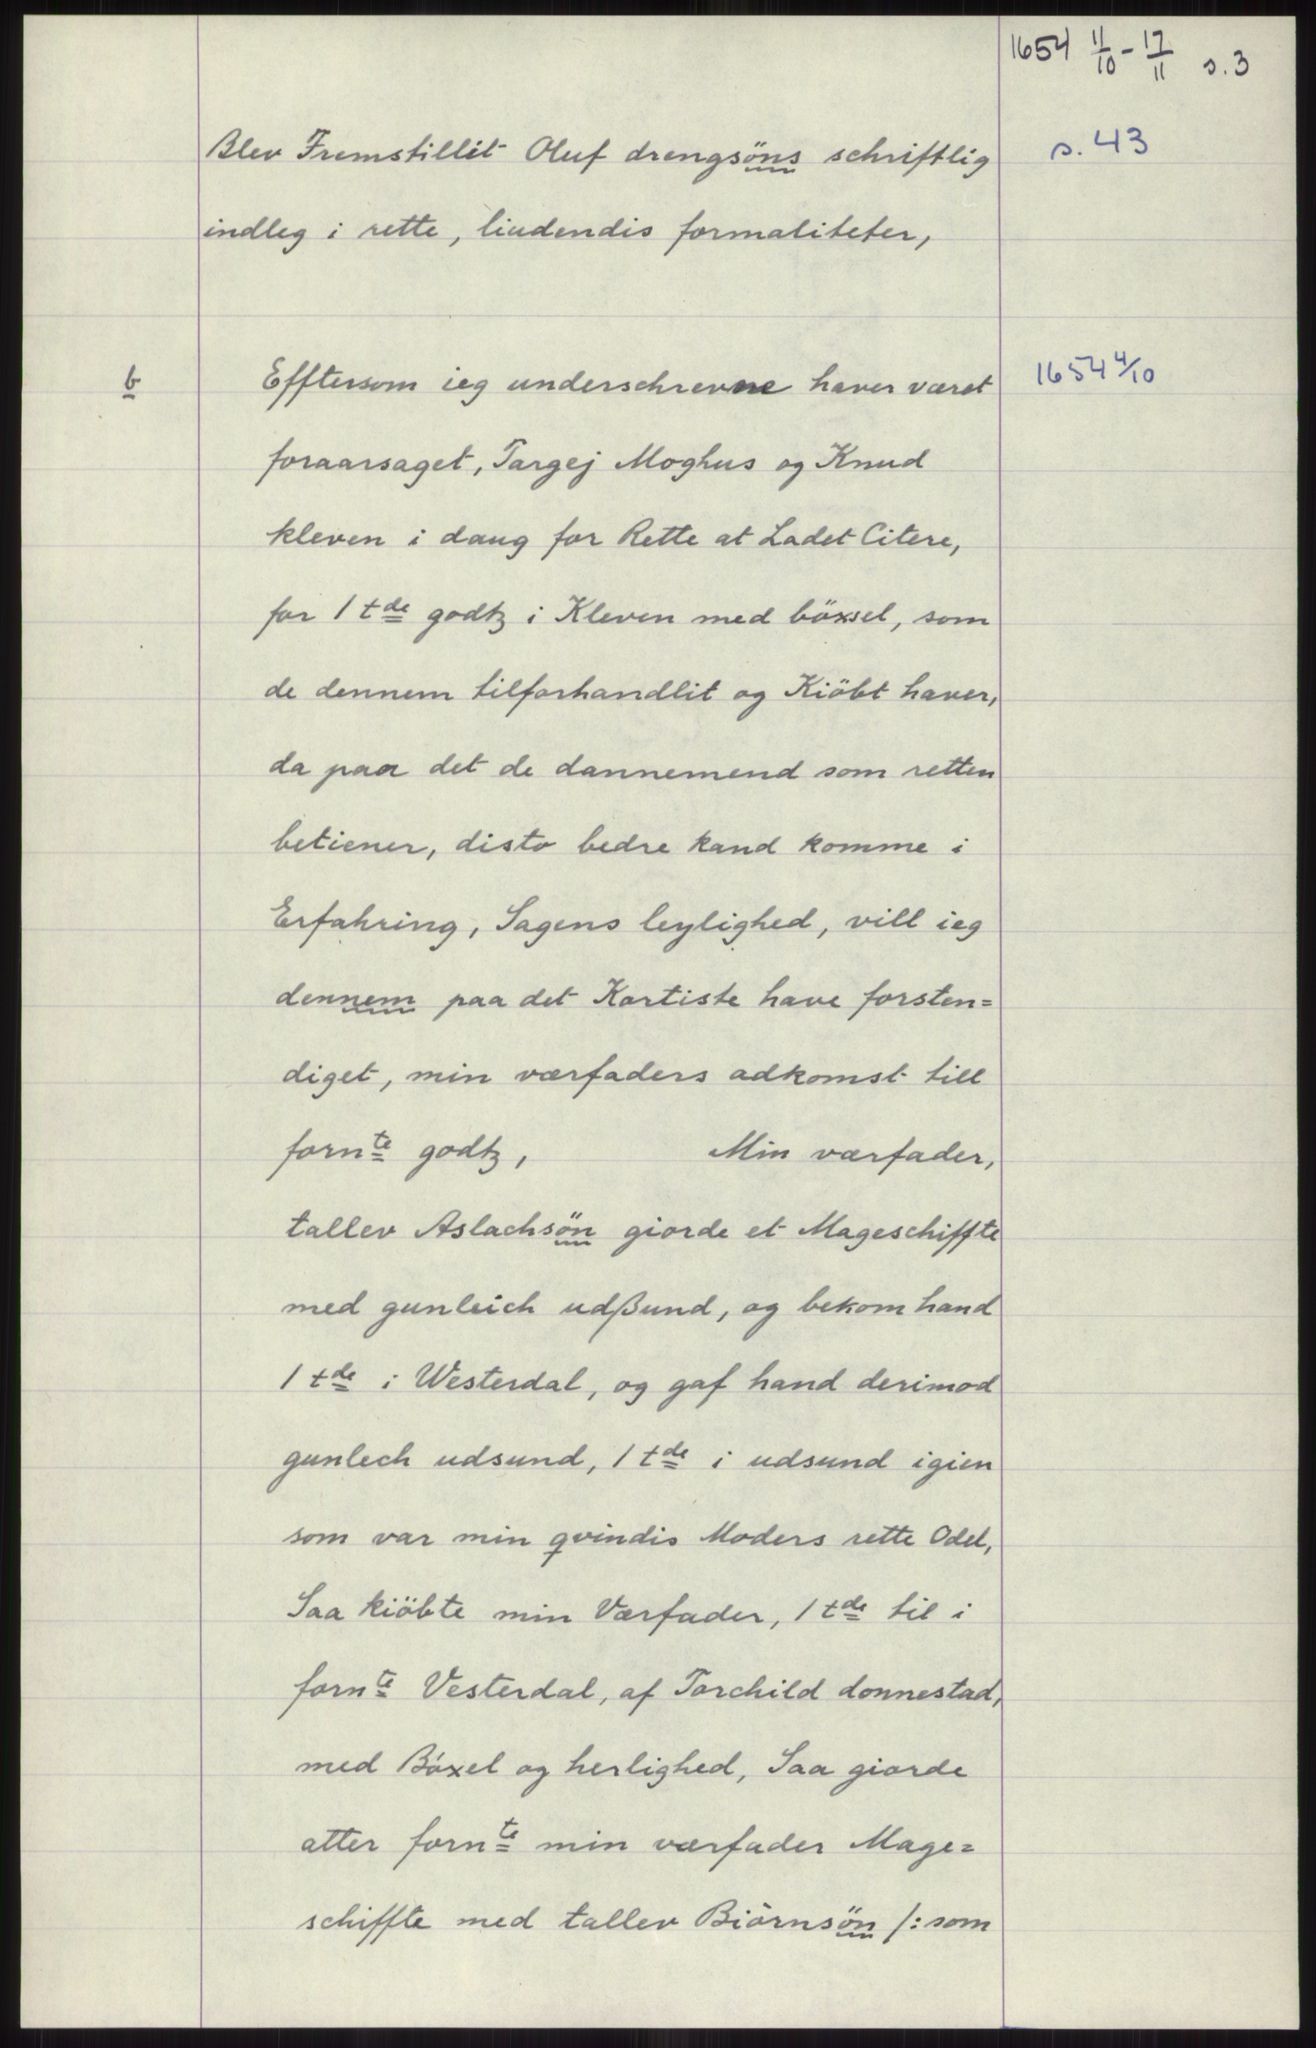 1654 11/10 - 17/11 s. 3
Blev Fremstillit Oluf drengsöns schriftlig
s. 43
indleg i rette, liudendis formaliteter,
b
Efftersom ieg underschrevne haver været
1654 4/10
foraarsaget, Targej Moghus og Knud
kleven i daug for Rette at Ladet Citere,
for 1 tde godtz i Kleven med böxsel, som
de dennem tilforhandlit og Kiöbt haver,
da paa det de dannemend som retten
betiener, disto bedre kand komme i
Erfahring, Sagens leylighed, vill ieg
dennem paa det Kortiste have forsten=
diget, minværfaders adkomst till
fornte godtz, Min værfader,
tallev Aslachsön giorde et Mageschiffte
med gunleich udßund, og bekom hand
1 tde i Westerdal, og gaf hand derimod
gunlech udsund, 1 tde i udsund igien
som var min qvindis Moders rette Odel,
Saa kiöbte min Værfader, 1 tde til i
fornte Vesterdal, af Torchild donnestad,
med Böxel og herlighed, Saa giorde
atter fornte min værfader Mage=
schiffte med tallev Biörnsön /: som